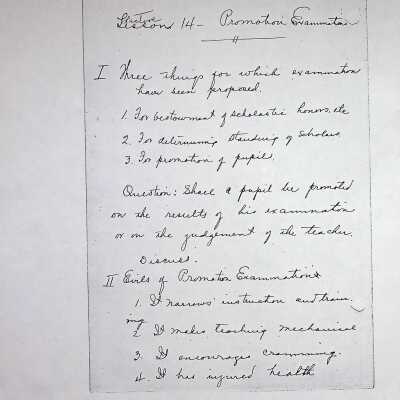 Lesson 14 - Promotion Examination
I Three things for which examination
have been proposed.
1. For bestowment of scholastic honors, etc
2. For determining standing of scholars
3. For promotion of pupil.
Question: Shall a pupil be promoted
on the results of his examination
or on the judgement of the teacher.
Discuss.
II Evils of Promotion Examinations
1. It narrows instruction and train-
ing
2. It makes teaching mechanical
3. It encourages cramming.
4. It has injured health